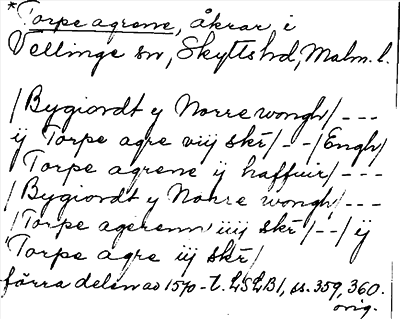 *Torpe agrene, åkrar i
Vellinge sn, Skytts hd, Malm. l.
/Bygiordt y Norre wongh/ ---
ÿ Torpe agre viij skr̄/--/Engh/
Torpe agrene ÿ haffuir/---
/Bygiordt y Nørre wongh/---
/Torpe agerenn iiij skr̄/--/ ÿ
Torpe agre iij skr̄/
förra delen av 1570-t. LSLB1, ss. 359, 360.
orig.